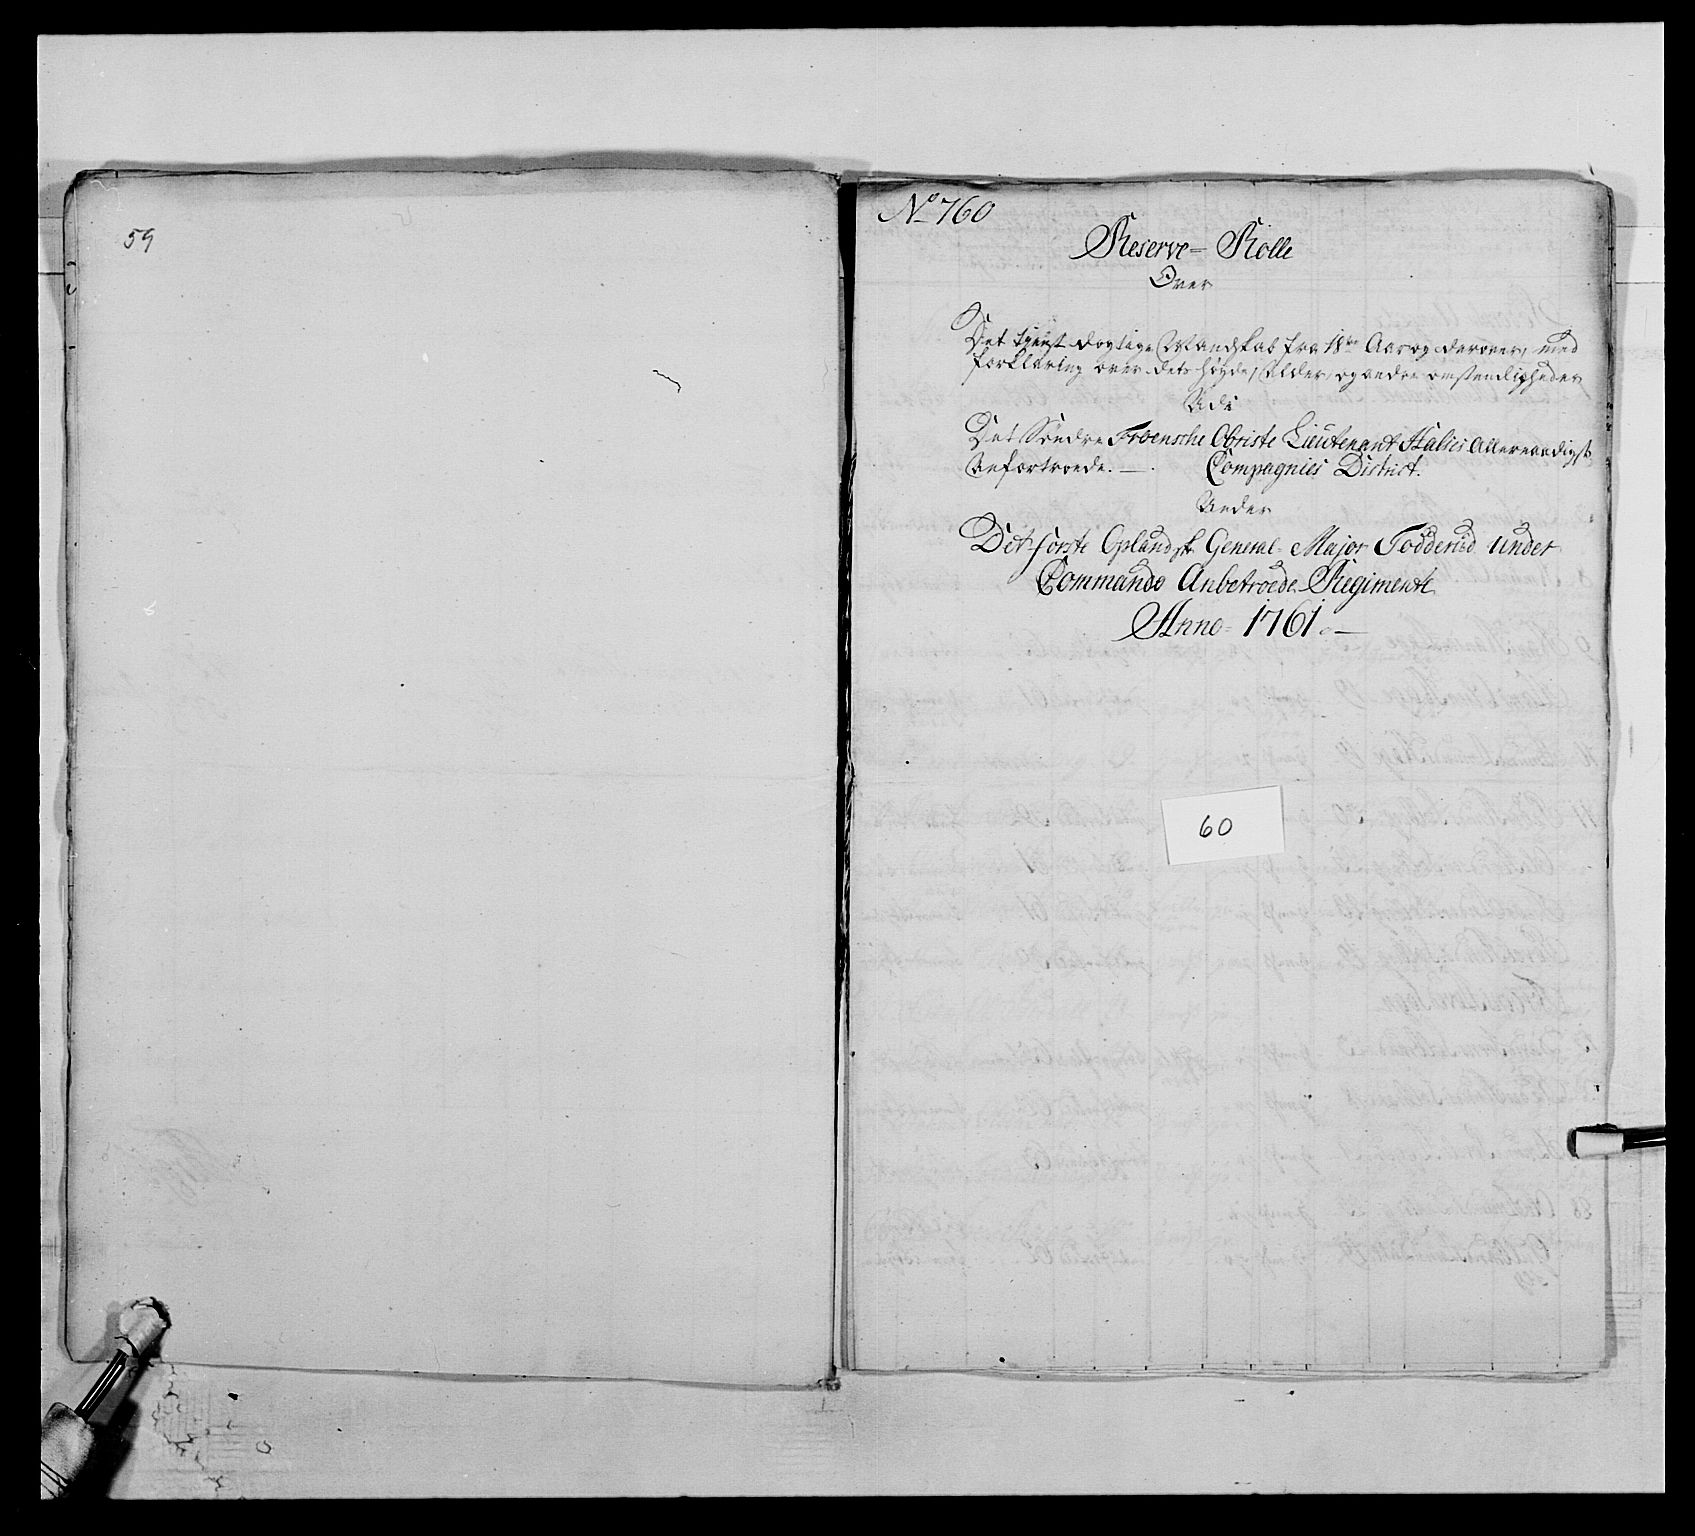 59
No 760
Reserve - Rolle
Over
Det tienst dogtige Mandskab fra 18ten Aar og derover, med
forklaring over dets høyde, Alder, og andre omstendigheder
Udi
Det Søndre Froensche Obriste Lieutenant Allernaadigst
Anfortroede. — . Compagnies District.
Under
Det første Oplandsk General- Major under
Commando Anbetroede Regimente
Anno - 1761. —
60